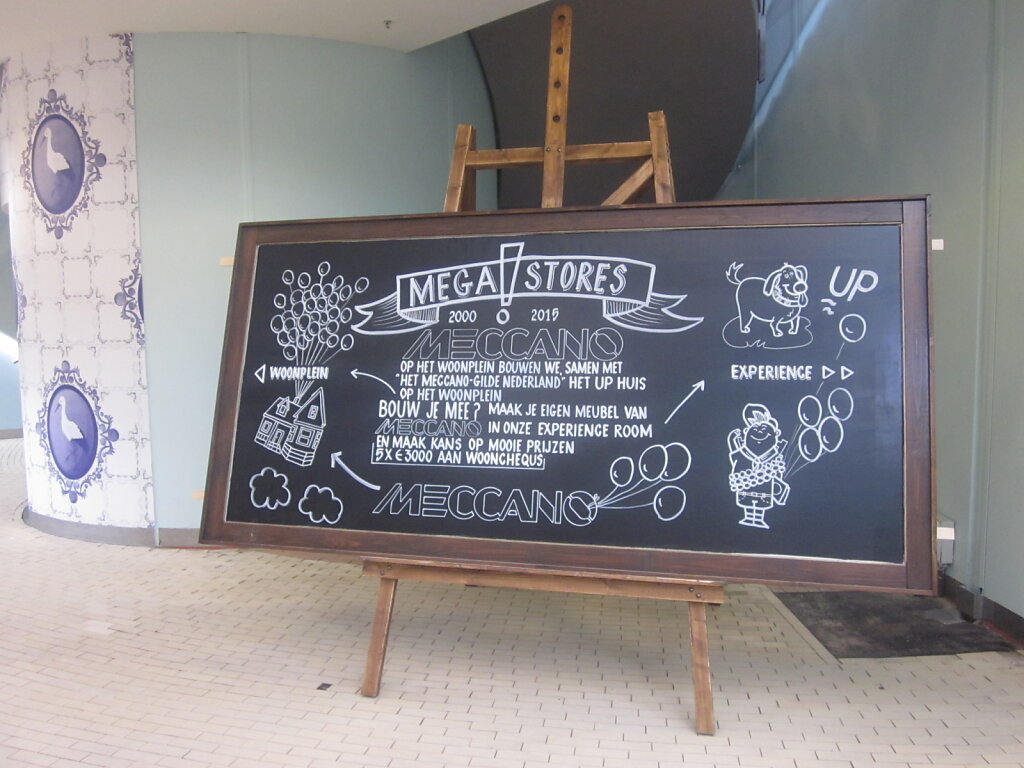 MEGA ! STORES
2000 2015
MECCANO
OP HET WOONPLEIN BOUWEN WE, SAMEN MET
"HET MECCANO-GILDE NEDERLAND" HET UP HUIS
OP HET WOONPLEIN
BOUW JE MEE? MAAK JE EIGEN MEUBEL VAN
MECCANO IN ONZE EXPERIENCE ROOM
EN MAAK KANS OP MOOIE PRIJZEN
5X €3000 AAN WOONCHEQUS
MECCANO
WOONPLEIN
UP
EXPERIENCE